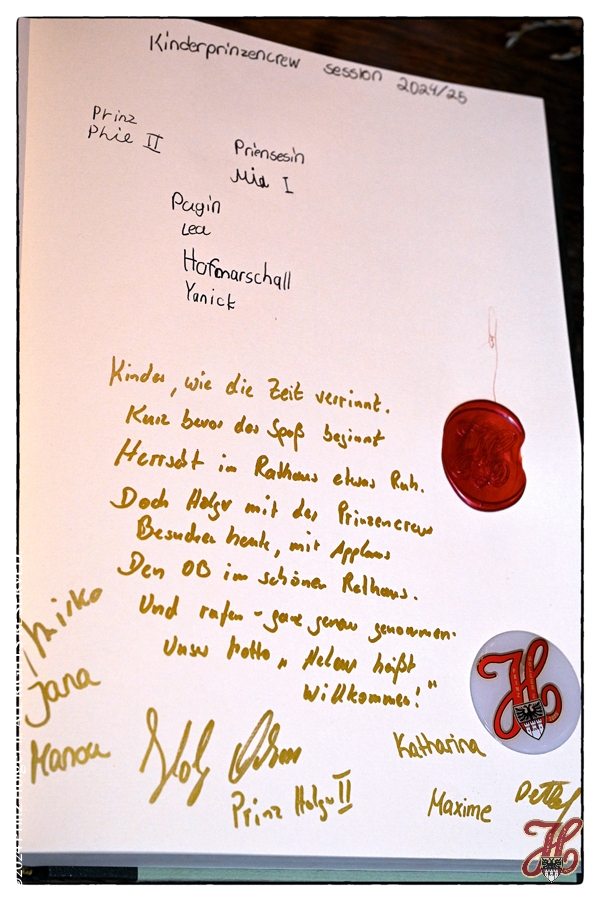 Kinderprinzencrew session 2024/25
Prinz
Phie II
Priensesin
Mia I
Pagin
Lea
Hofmarschall
Yanick
Kinder, wie die Zeit verrinnt.
Kurz bevor der Spaß beginnt
Herrscht im Rathaus etwas Ruh.
Doch Holger mit der Prinzencrew
Besuchen heute, mit Applaus
Den OB im schönen Rathaus.
Und rufen - ganz genau genommen.
Unser Motto „Helau heißt
Willkommen!"
Mirko
Jana
Manou
Katharina
Prinz Holger II
Maxime
Detlef